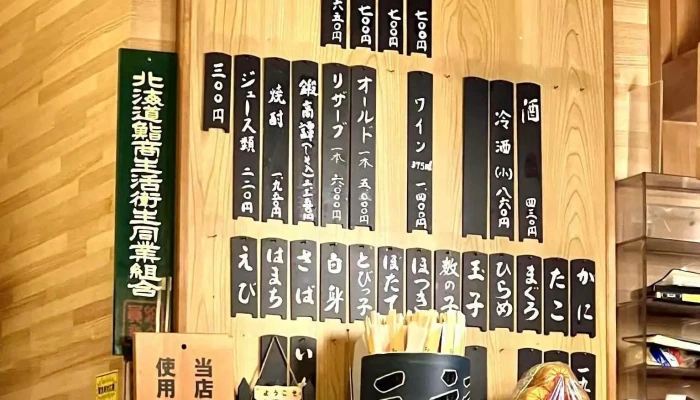 七〇〇円
七〇〇円
七〇〇円
六五〇円
酒 四三〇円
冷酒(小) 八六〇円
ワイン 375ml 一、四〇〇円
オールド 一本 五、〇〇〇円
リザーブ 一本 六、〇〇〇円
鍛高譚
焼酎 一、九五〇円
ジュース類 二二〇円
三〇〇円
かに
たこ
まぐろ
ひらめ
玉子
数の子
ほっき
ほたて
とびっ子
白身
さば
はまち
えび
い
北海道鮨商生活衛生同業組合
当店
使用
ようこそ